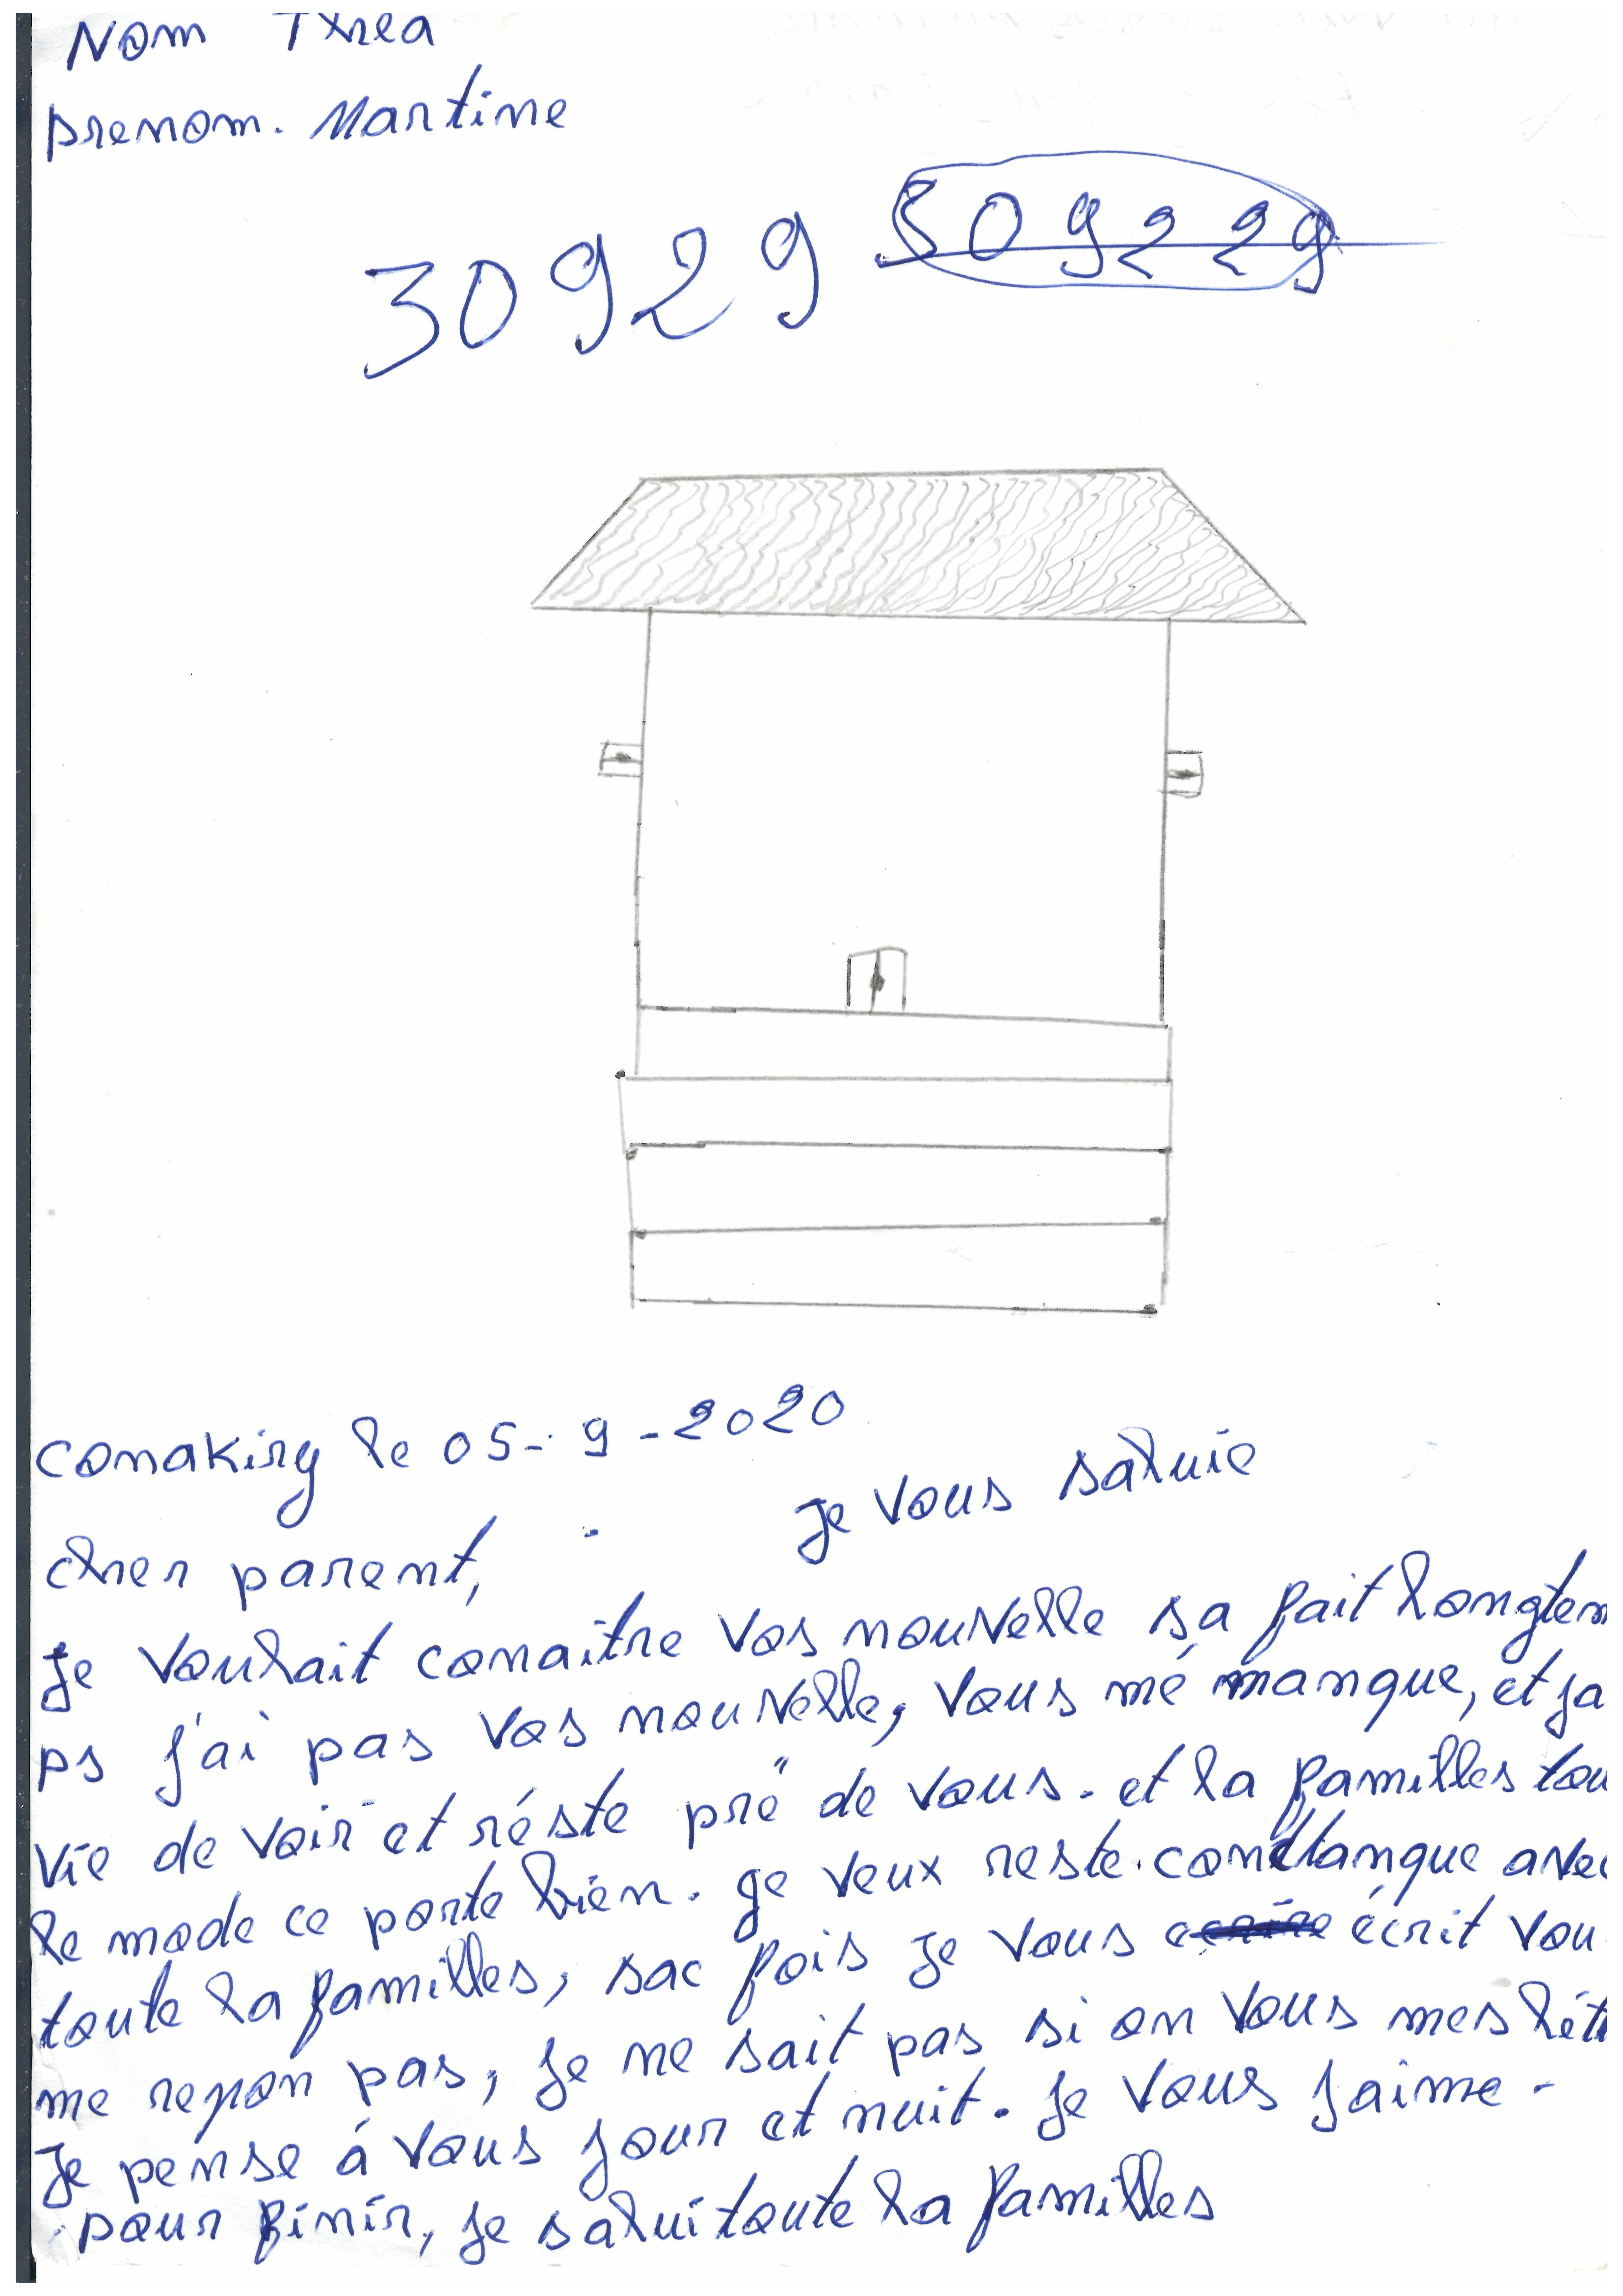 Nom Thea
prenom. Martine
30929 309229
conakiry le 05-9-2020
je vous saluie
cher parent,
Je voulait conaître vos nouvelle sa fait longtem
ps j'ai pas vos nouvelle, vous mé manque, et ja
vie de voir et réste pré de vous. et la familles tou
le mode ce porte bien. je veux reste avec
toute la familles, sac fois je vous écrit vou
me repon pas, je ne sait pas si on vous mes lét
Je pense á vous jour et nuit. Je vous jaime -
pour finir, je salui toute la familles